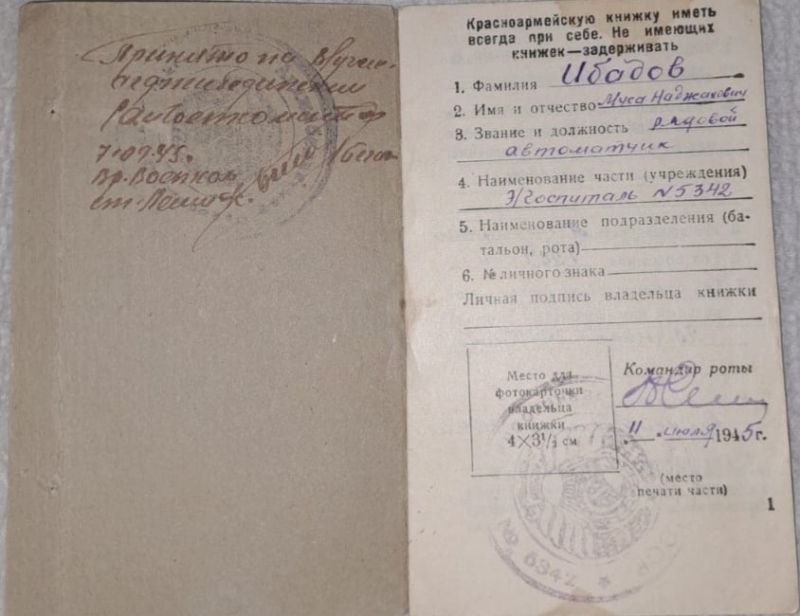 Принято на
7.09.45г.
Вр. Военком
Красноармейскую книжку иметь
всегда при себе. Не имеющих
книжек—задерживать
1. Фамилия Ибадов
2. Имя и отчество Муса Наджафович
3. Звание и должность рядовой
автоматчик
4. Наименование части (учреждения)
Э/Госпиталь №5342
5. Наименование подразделения (ба-
тальон, рота)
6. № личного знака
Личная подпись владельца книжки
Место для
фотокарточки
владельца
книжки
4×3½ см
Командир роты
11 июля 1945 г.
(место
печати части)
1
№ 5342 * СССР